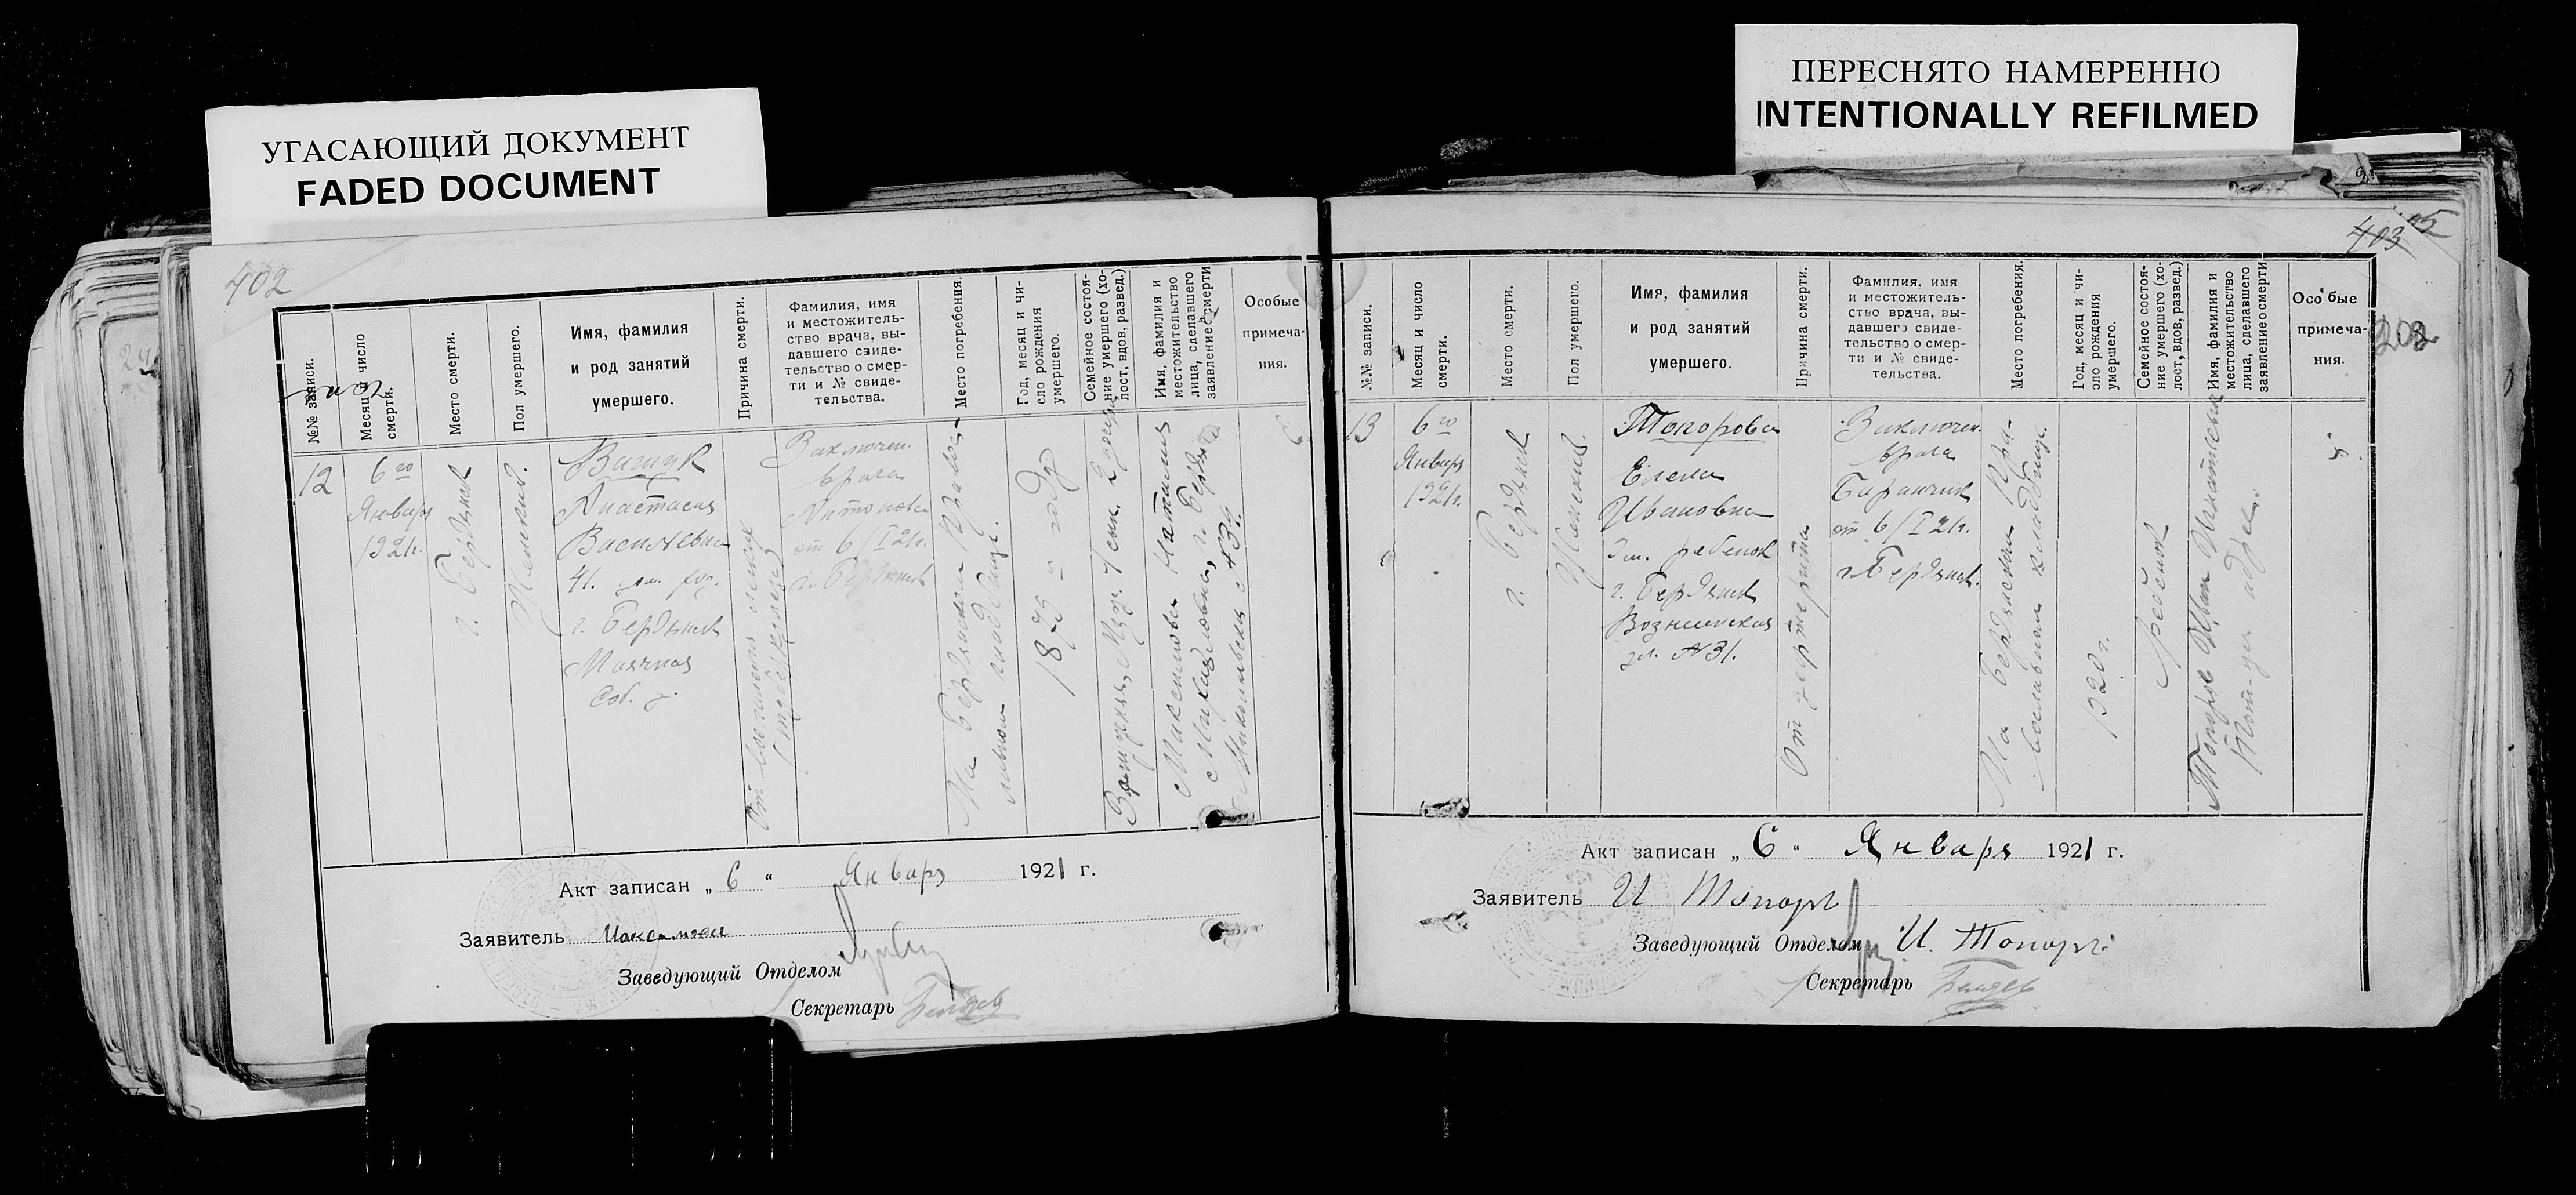 УГАСАЮЩИЙ ДОКУМЕНТ
FADED DOCUMENT
402
№№ записи.
Месяц и число
смерти.
Место смерти.
Пол умершего.
Имя, фамилия
и род занятий
умершего.
Причина смерти.
Фамилия, имя
и местожитель-
ство врача, вы-
давшего свиде-
тельство о смер-
ти и № свиде-
тельства.
Место погребения.
Год, месяц и чи-
сло рождения
умершего.
Семейное состоя-
ние умершего (хо-
лост, вдов, развед.)
Имя, фамилия и
местожительство
лица, сделавшего
заявление о смерти
Особые
примеча-
ния.
12
6го
Января
1921г.
г. Бердянск
Женский.
Ващук
Анастасия
Васильевна
41. дом. хоз.
г. Бердянск
Маячная
Соб. д.
От воспаления легких
(туберкулеза)
Заключен.
врача
Антонова
от 6/I 21г.
г. Бердянск
На Бердянском Правос-
лавном кладбище.
1879 - году
Замужняя, Муж. 1 сын. 2 дочери
Максимова Наталия
Михайловна, г. Бердянск
Никольская № 43.
Акт записан „ 6 “ Января 1921 г.
Заявитель Максимова
Заведующий Отделом
Секретарь
ПЕРЕСНЯТО НАМЕРЕННО
INTENTIONALLY REFILMED
403
202
№№ записи.
Месяц и число
смерти.
Место смерти.
Пол умершего.
Имя, фамилия
и род занятий
умершего.
Причина смерти.
Фамилия, имя
и местожитель-
ство врача, вы-
давшего свиде-
тельство о смер-
ти и № свиде-
тельства.
Место погребения.
Год, месяц и чи-
сло рождения
умершего.
Семейное состоя-
ние умершего (хо-
лост, вдов, развед.)
Имя, фамилия и
местожительство
лица, сделавшего
заявление о смерти
Особые
примеча-
ния.
13
6го
Января
1921г.
г. Бердянск
Женский.
Топорова
Елена
Ивановна
ребенок
г. Бердянск
Вознесенская
ул. №31.
От
Заключен.
врача
от 6/I 21г.
г. Бердянск.
На Бердянском Пра-
вославном кладбище.
1920 г.
ребенок
Топоров Иван
Акт записан „ 6 “ Января 1921 г.
Заявитель И Топоров
Заведующий Отделом И. Топоров
Секретарь